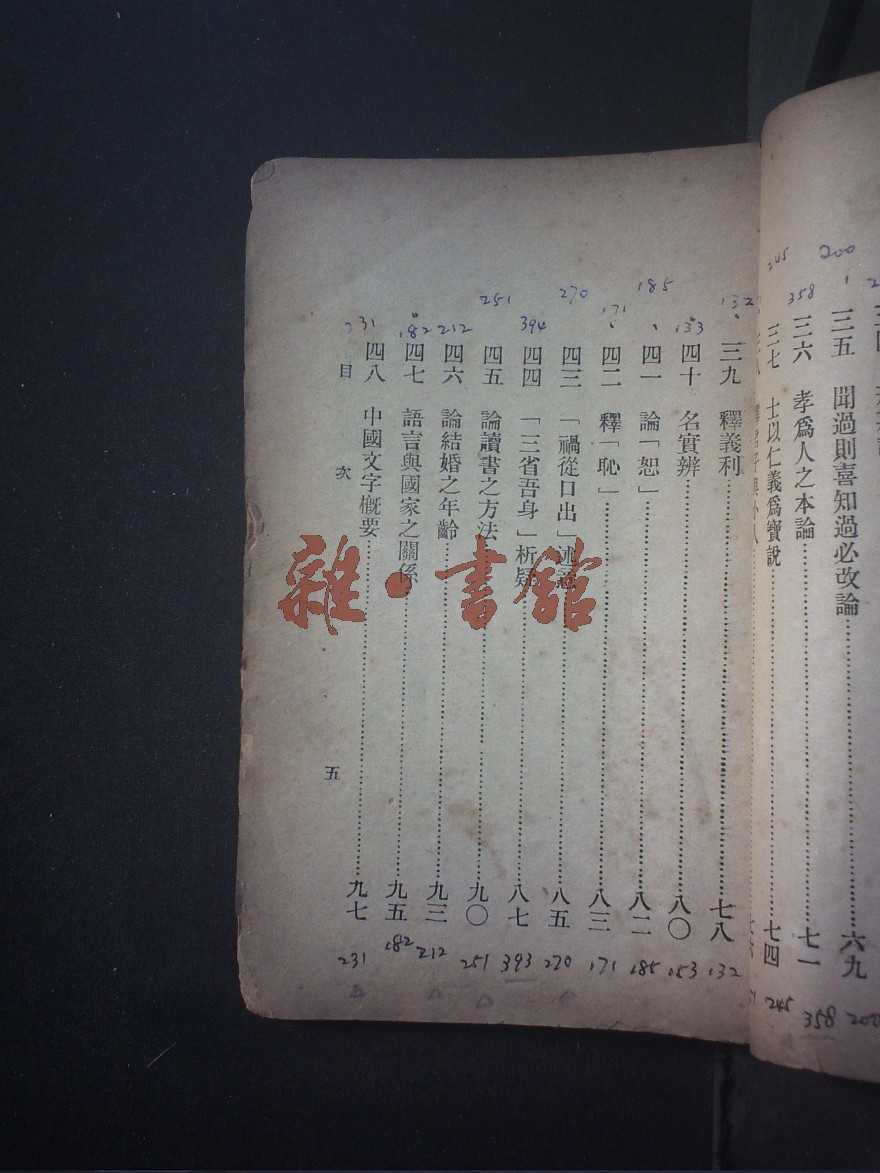 200
三五 聞過則喜知過必改論……六九
200
358
三六 孝爲人之本論……七一
358
245
三七 士以仁義爲寶說……七四
245
132
三九 釋義利……七八
132
153
四十 名實辨……八〇
153
185
四一 論「恕」……八二
185
171
四二 釋「恥」……八三
171
270
四三 「禍從口出」述……八五
270
394
四四 「三省吾身」析疑……八七
393
251
四五 論讀書之方法……九〇
251
212
四六 論結婚之年齡……九三
212
182
四七 語言與國家之關係……九五
182
231
四八 中國文字概要……九七
231
目次
五
雜·書館